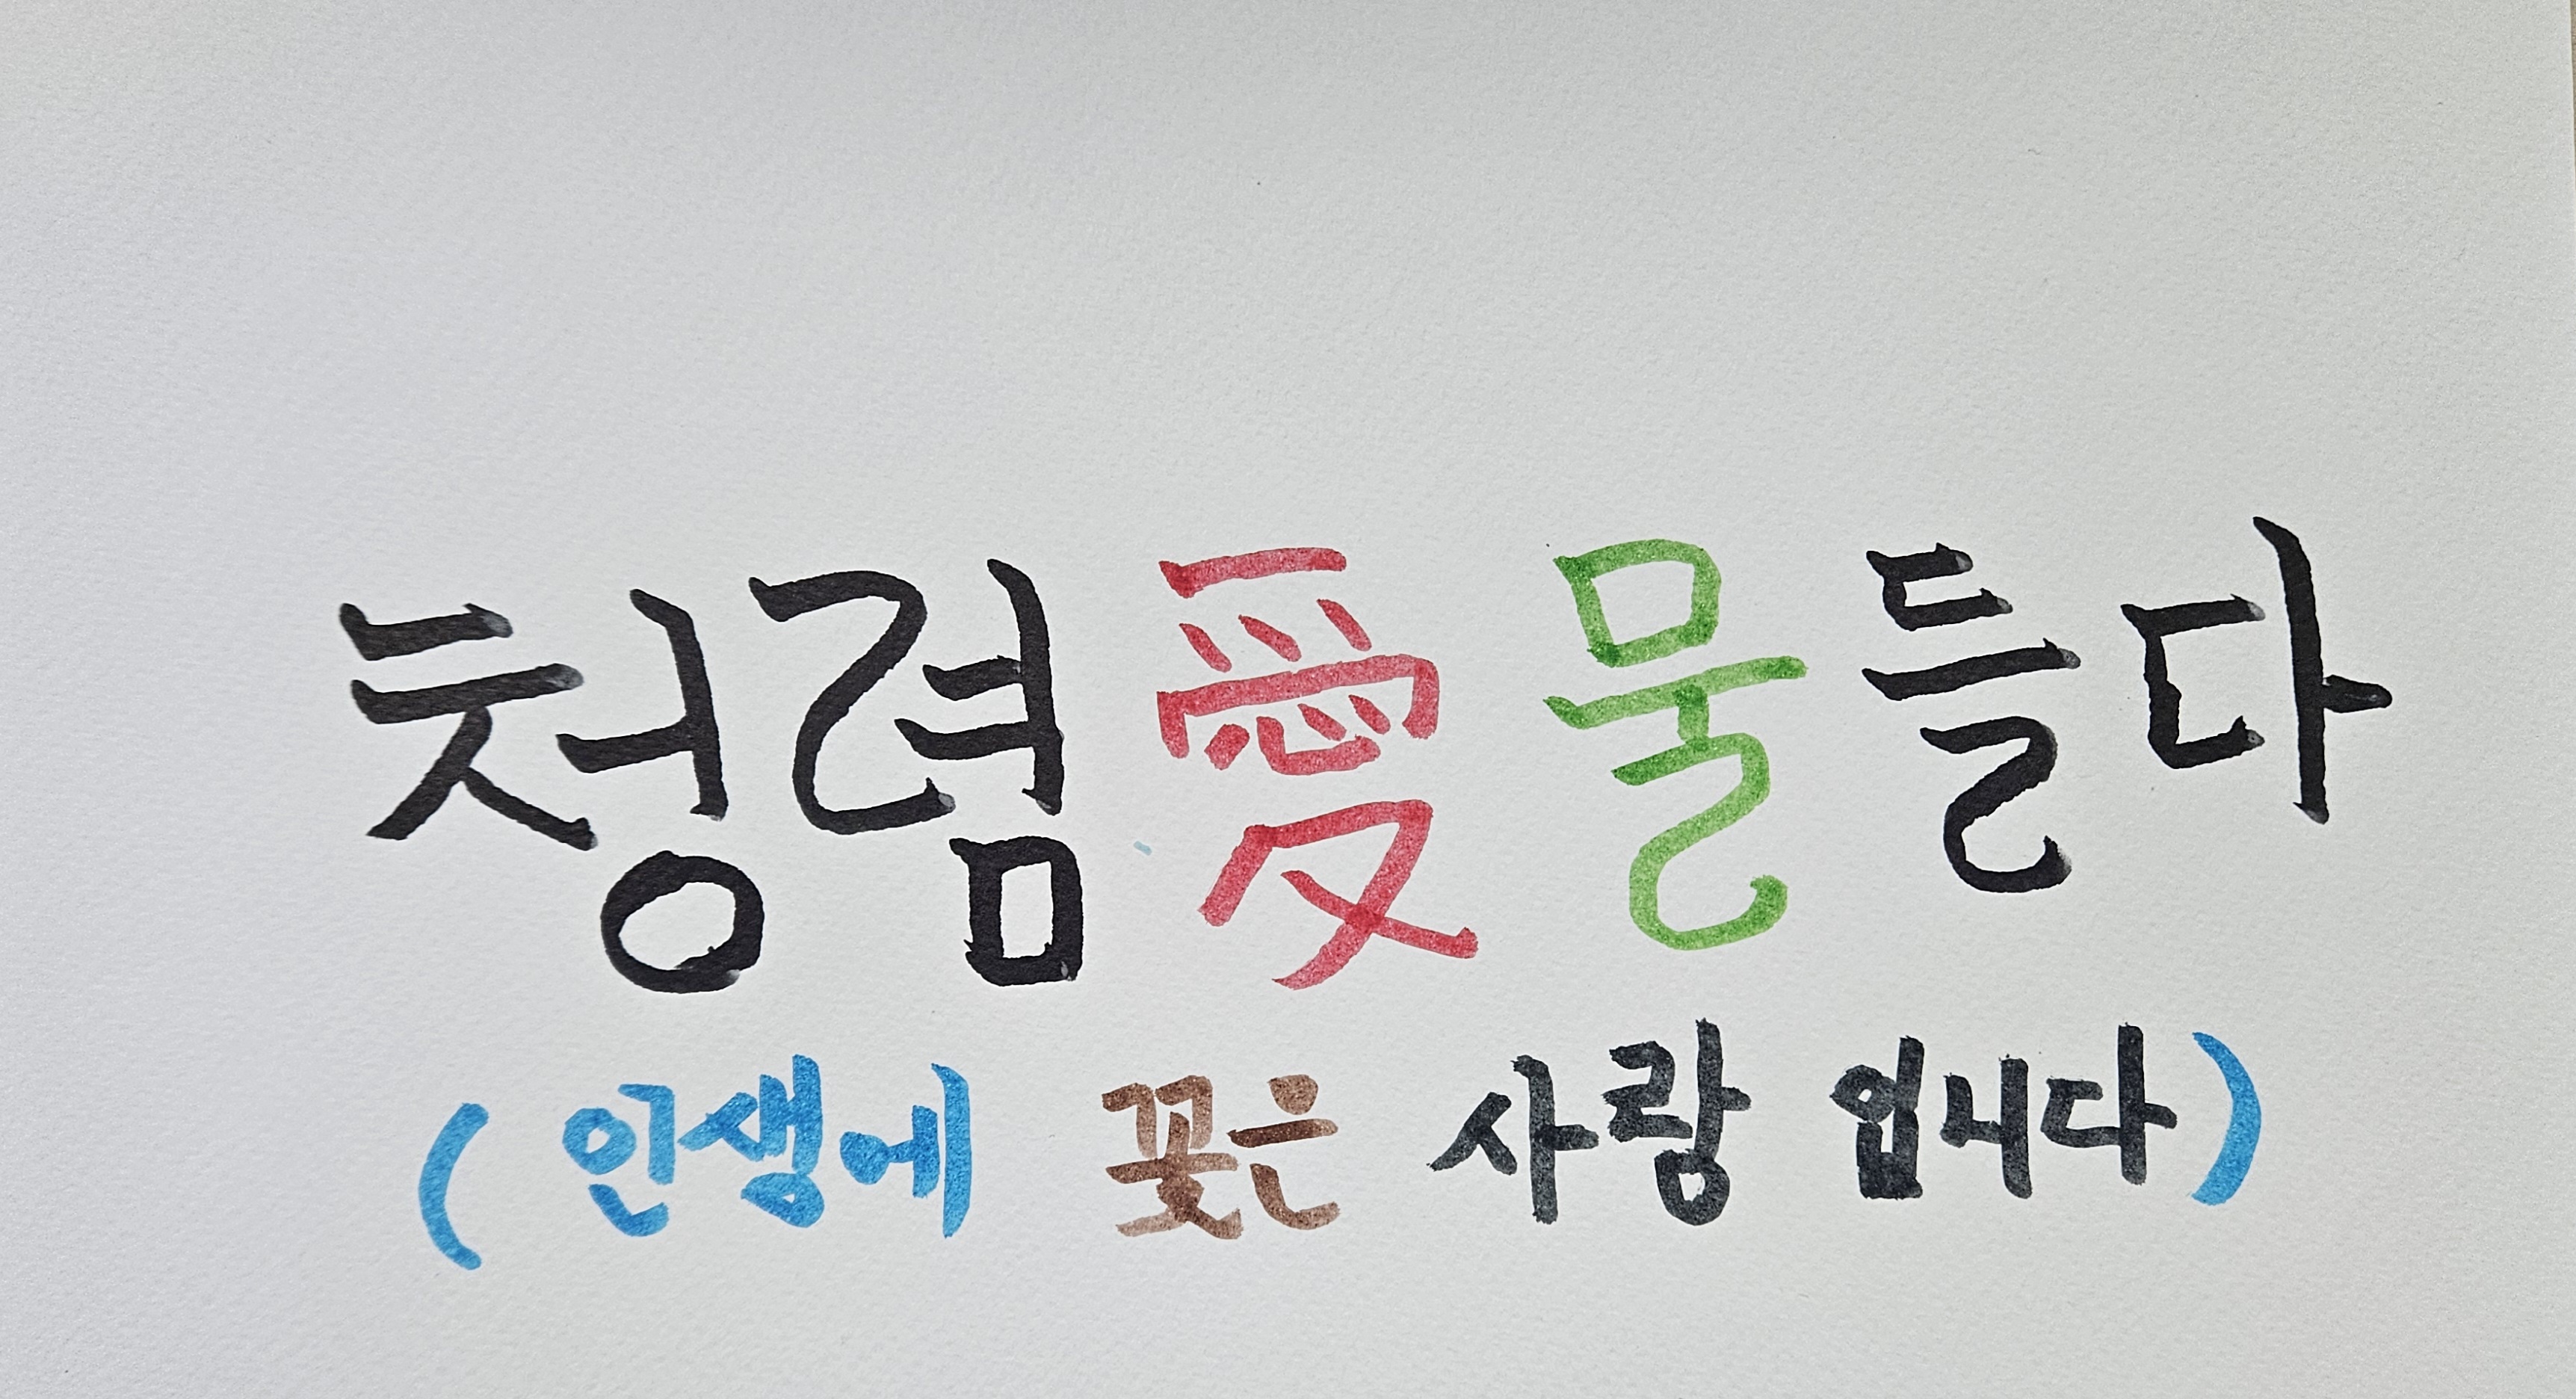 청렴愛 물들다
(인생에 꽃은 사랑 입니다)